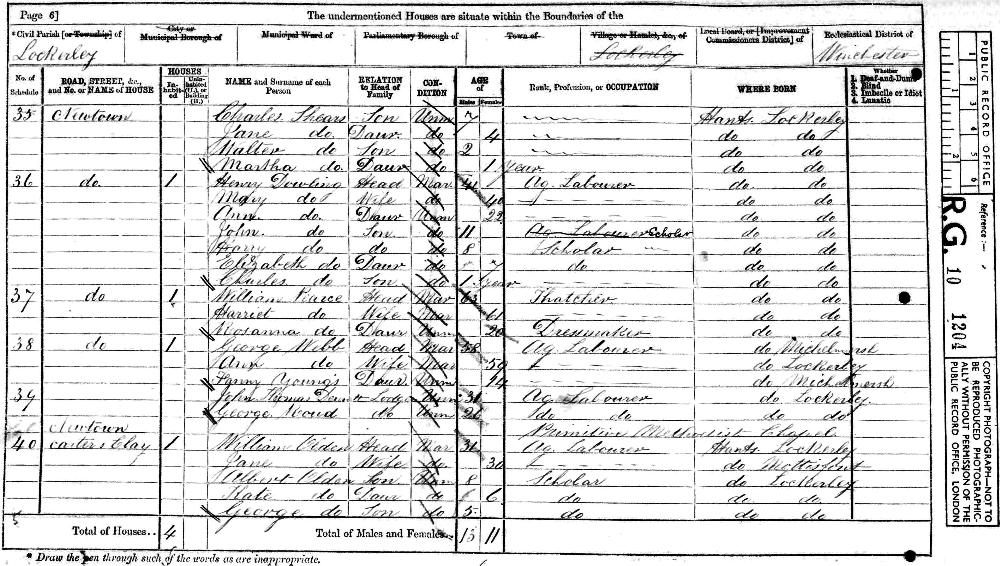 Page 6]
The undermentioned Houses are situate within the Boundaries of the
*Civil Parish [or Township] of
City or Municipal Borough of
Municipal Ward of
Parliamentary Borough of
Town of
Village or Hamlet, &c., of
Local Board, or [Improvement Commissioners District] of
Ecclesiastical District of
Lockerley
Lockerley
Winchester
No. of Schedule
ROAD, STREET, &c., and No. or NAME of HOUSE
HOUSES
Inhabited
Uninhabited (U.), or Building (B.)
NAME and Surname of each Person
RELATION to Head of Family
CONDITION
AGE of
Males
Females
Rank, Profession, or OCCUPATION
WHERE BORN
Whether
1. Deaf-and-Dumb
2. Blind
3. Imbecile or Idiot
4. Lunatic
35 Newtown Charles Shears Son Unm 7 Hants Lockerley
Jane do. Daur do 4 do do
Walter do Son do 2 do do
Martha do. Daur do 1 Year do do
36 do 1 Henry Dowling Head Mar Ag. Labourer do do
Mary do Wife do 40 do do
Ann do. Daur Unm 22 do do
John do. Son do 11 Ag. Labourer Scholar do do
Harry do do do 8 Scholar do do
Elizabeth do Daur do 7 do do do
Charles do Son do 1 Year do do
37 do 1 William Pearce Head Mar 63 Thatcher do do
Harriet do Wife Mar 61 do do
Rosanna do Daur Unm 20 Dressmaker do do
38 do 1 George Webb Head Mar 58 Ag. Labourer do Michelmersh
Ann do Wife Mar 59 do Lockerley
Fanny Youngs Daur Unm 14 do Michelmersh
39 John Thomas Lodger Unm 31 Ag. Labourer do Lockerley
George do Unm 21 do do do do
Newtown Primitive Methodist Chapel
40 Carters Clay 1 William Olden Head Mar 31 Ag. Labourer Hants Lockerley
Jane do Wife do. 30 do Mottisfont
Albert Olden Son Unm 8 Scholar do Lockerley
Kate do Daur do 6 do do do
George do Son do 5 do do do
Total of Houses.. 4
Total of Males and Females.. 15 11
* Draw the pen through such of the words as are inappropriate.
PUBLIC RECORD OFFICE
1 2 3 4 5 6
1 2
Reference :-
R.G. 10 1204
COPYRIGHT PHOTOGRAPH—NOT TO BE REPRODUCED PHOTOGRAPHICALLY WITHOUT PERMISSION OF THE PUBLIC RECORD OFFICE, LONDON